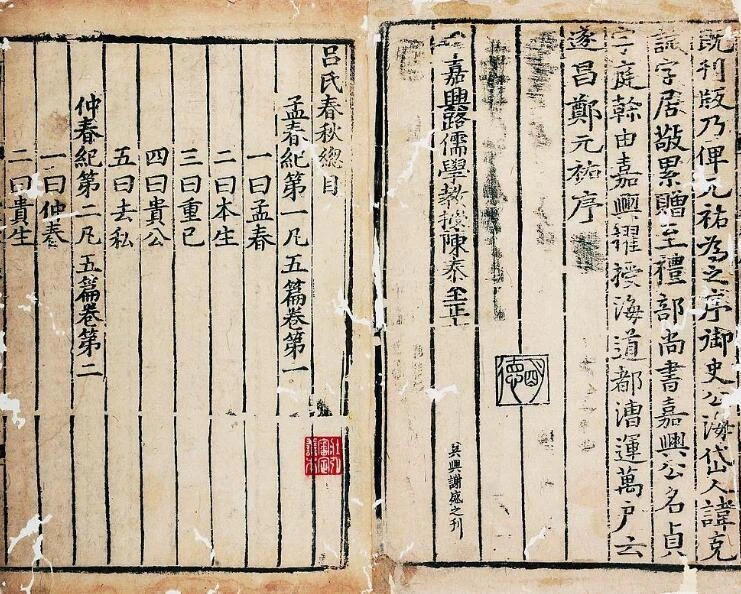 既刊版乃俾元祐為之序御史公海岱人諱克
誠字居敬累贈至禮部尚書嘉興公名貞
字庭榦由嘉興擢授海道都漕運萬戶云
遂昌鄭元祐序
嘉興路儒學教授陳泰至正
吳興謝盛之刊
呂氏春秋總目
孟春紀第一凡五篇卷第一
一曰孟春
二曰本生
三曰重已
四曰貴公
五曰去私
仲春紀第二凡五篇卷第二
一曰仲春
二曰貴生